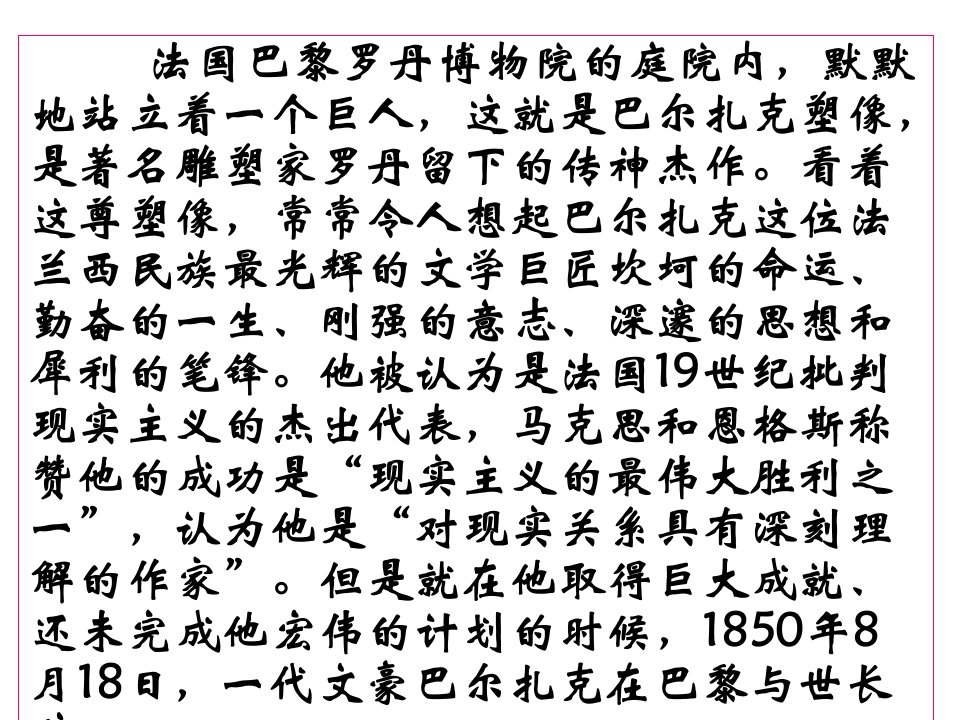 法国巴黎罗丹博物院的庭院内，默默
地站立着一个巨人，这就是巴尔扎克塑像，
是著名雕塑家罗丹留下的传神杰作。看着
这尊塑像，常常令人想起巴尔扎克这位法
兰西民族最光辉的文学巨匠坎坷的命运、
勤奋的一生、刚强的意志、深邃的思想和
犀利的笔锋。他被认为是法国19世纪批判
现实主义的杰出代表，马克思和恩格斯称
赞他的成功是“现实主义的最伟大胜利之
一”，认为他是“对现实关系具有深刻理
解的作家”。但是就在他取得巨大成就、
还未完成他宏伟的计划的时候，1850年8
月18日，一代文豪巴尔扎克在巴黎与世长